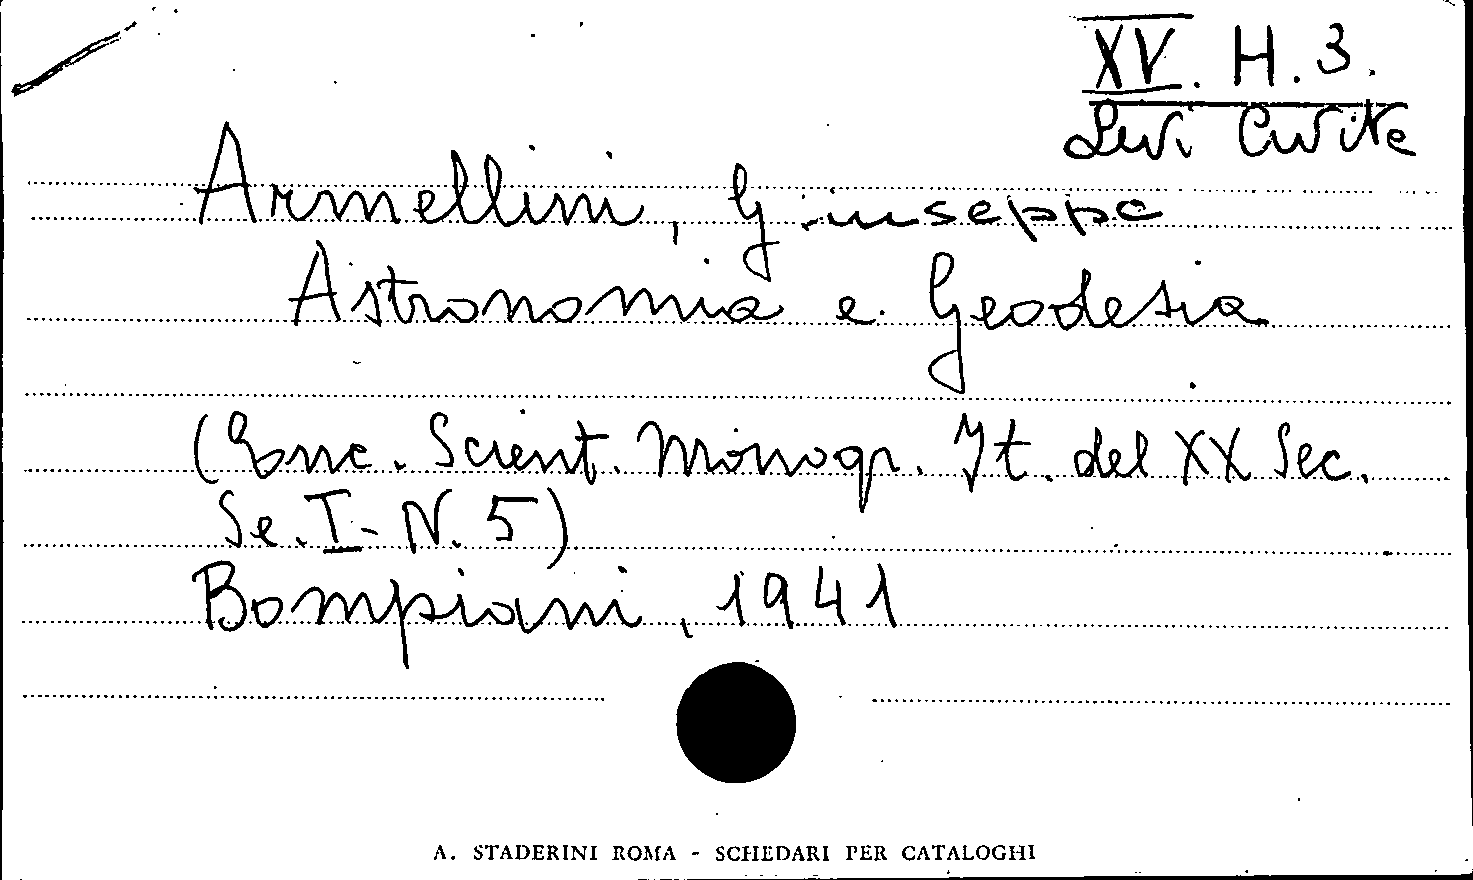 XV. H. 3.
Levi Civita
Armellini, Giuseppe
Astronomia e Geodesia
(Enc. Scient. Monogr. It. del XX Sec.
Se. I - N. 5)
Bompiani, 1941
A. STADERINI ROMA - SCHEDARI PER CATALOGHI